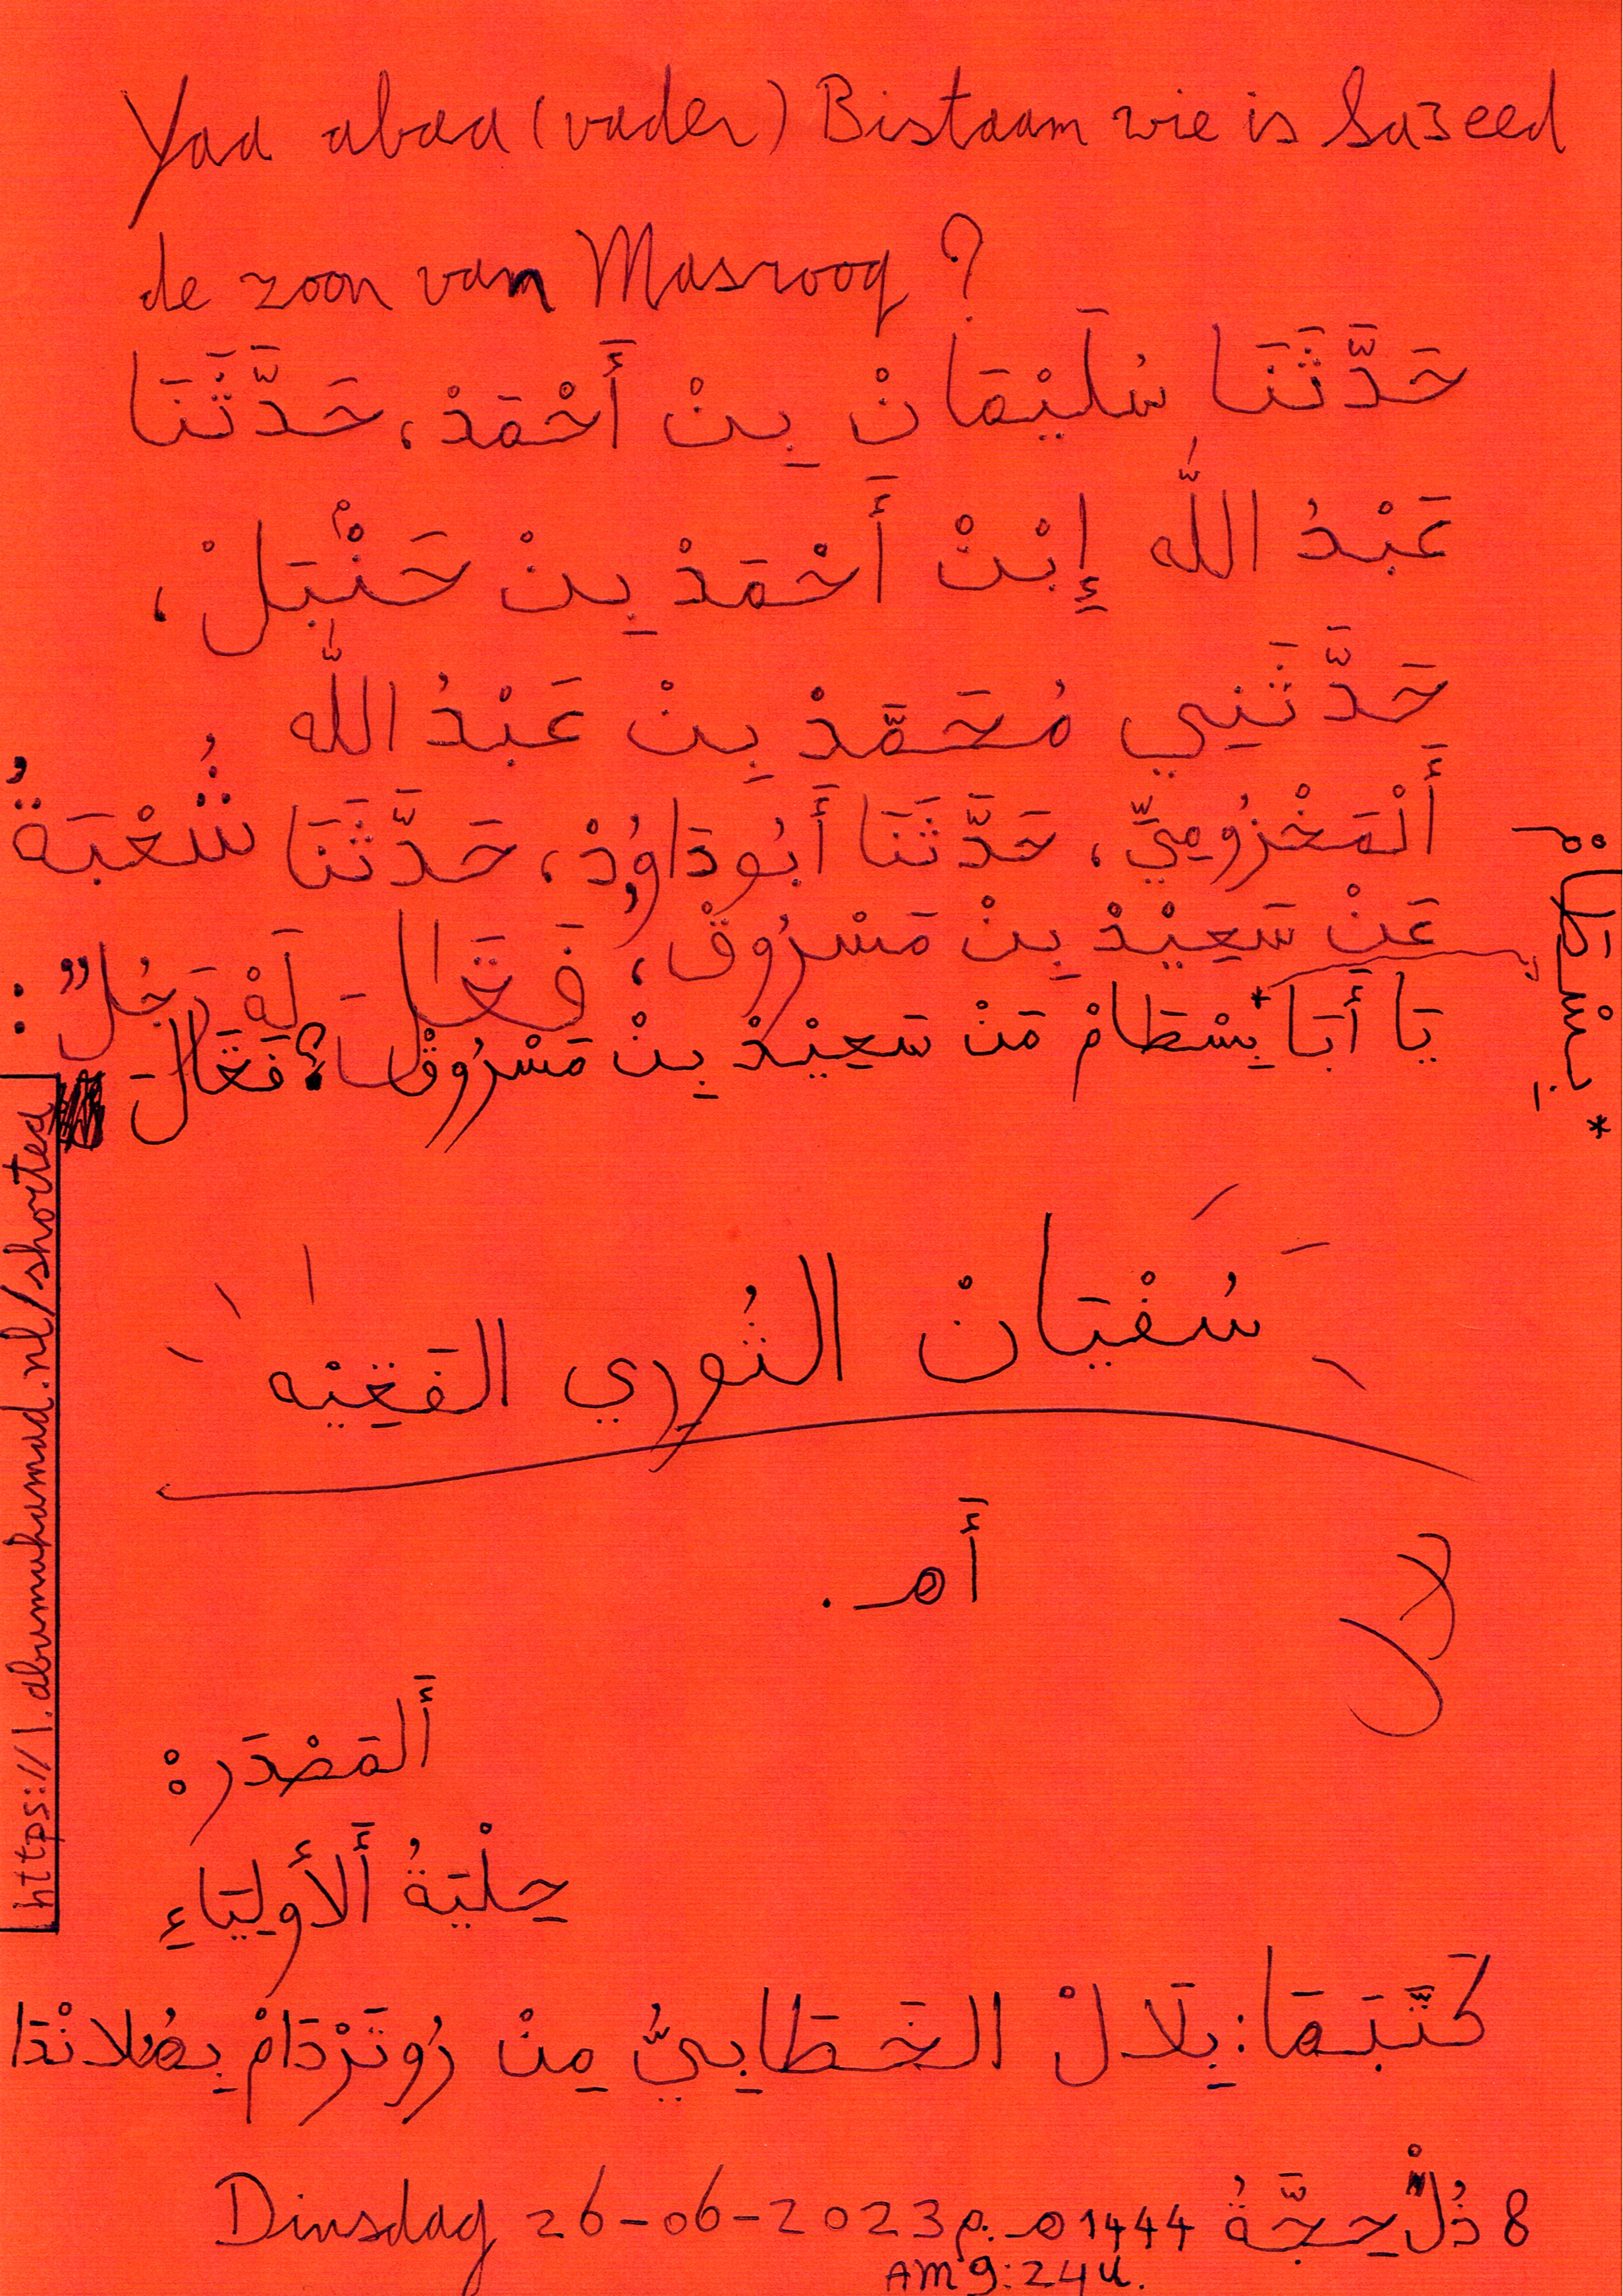 Yaa abaa (vader) Bistaam wie is Sa3eed
de zoon van Masrooq?
حَدَّثَنَا سُلَيْمَانْ بِنْ أَحْمَدْ، حَدَّثَنَا
عَبْدُ اللّٰه إِبْنْ أَحْمَدْ بِنْ حَنْبَلْ،
حَدَّثَنِي مُحَمَّدْ بِنْ عَبْدُ اللّٰه
أَلْمَخْزُومِيِّ، حَدَّثَنَا أَبُو دَاوُدْ، حَدَّثَنَا شُعْبَةُ
عَنْ سَعِيْدْ بِنْ مَسْرُوقْ، فَقَالَ لَهْ رَجُلٌ:
يَا أَبَا بِسْطَامْ* مَنْ سَعِيْدْ بِنْ مَسْرُوقْ؟ فَقَالَ
* بِسْطَامْ
سُفْيَانْ الثُوري الفَقِيْه
أهـ.
لا
أَلمَصْدَر:
حِلْيَةُ أَلأَولِيَاءِ
كَتَّبَهَا: بِلَالْ الخَطَابِيُّ مِنْ رُوتَرْدَامْ بِهُلانْدَا
8 ذُلْحِجَّةُ 1444هـ Dinsdag 26-06-2023م.
AM 9:24 u.
https://1.abumuhamad.nl/shorted